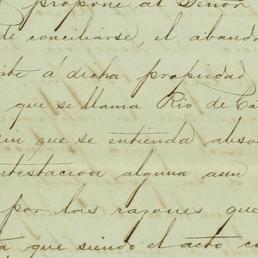 propone al Señor
de conciliarse, el aband
á dicha propiedad
que se llama Rio de Ca
que se entienda abso
ntestacion alguna aun
por las razones que
que siendo el acto co